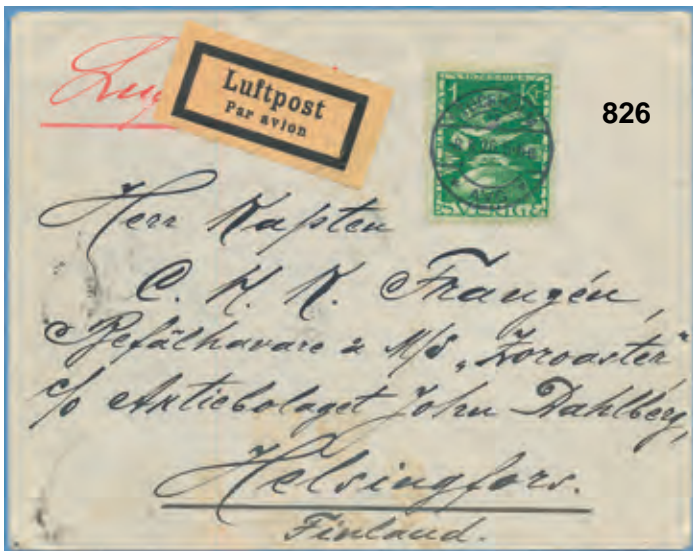 Luftpost
Par avion
1 Kr
SVERIGE
826
Herr Kapten
C. H. K. Frangén,
Befälhavare å M/S „Zoroaster"
c/o Aktiebolaget John Dahlberg,
Helsingfors.
Finland.